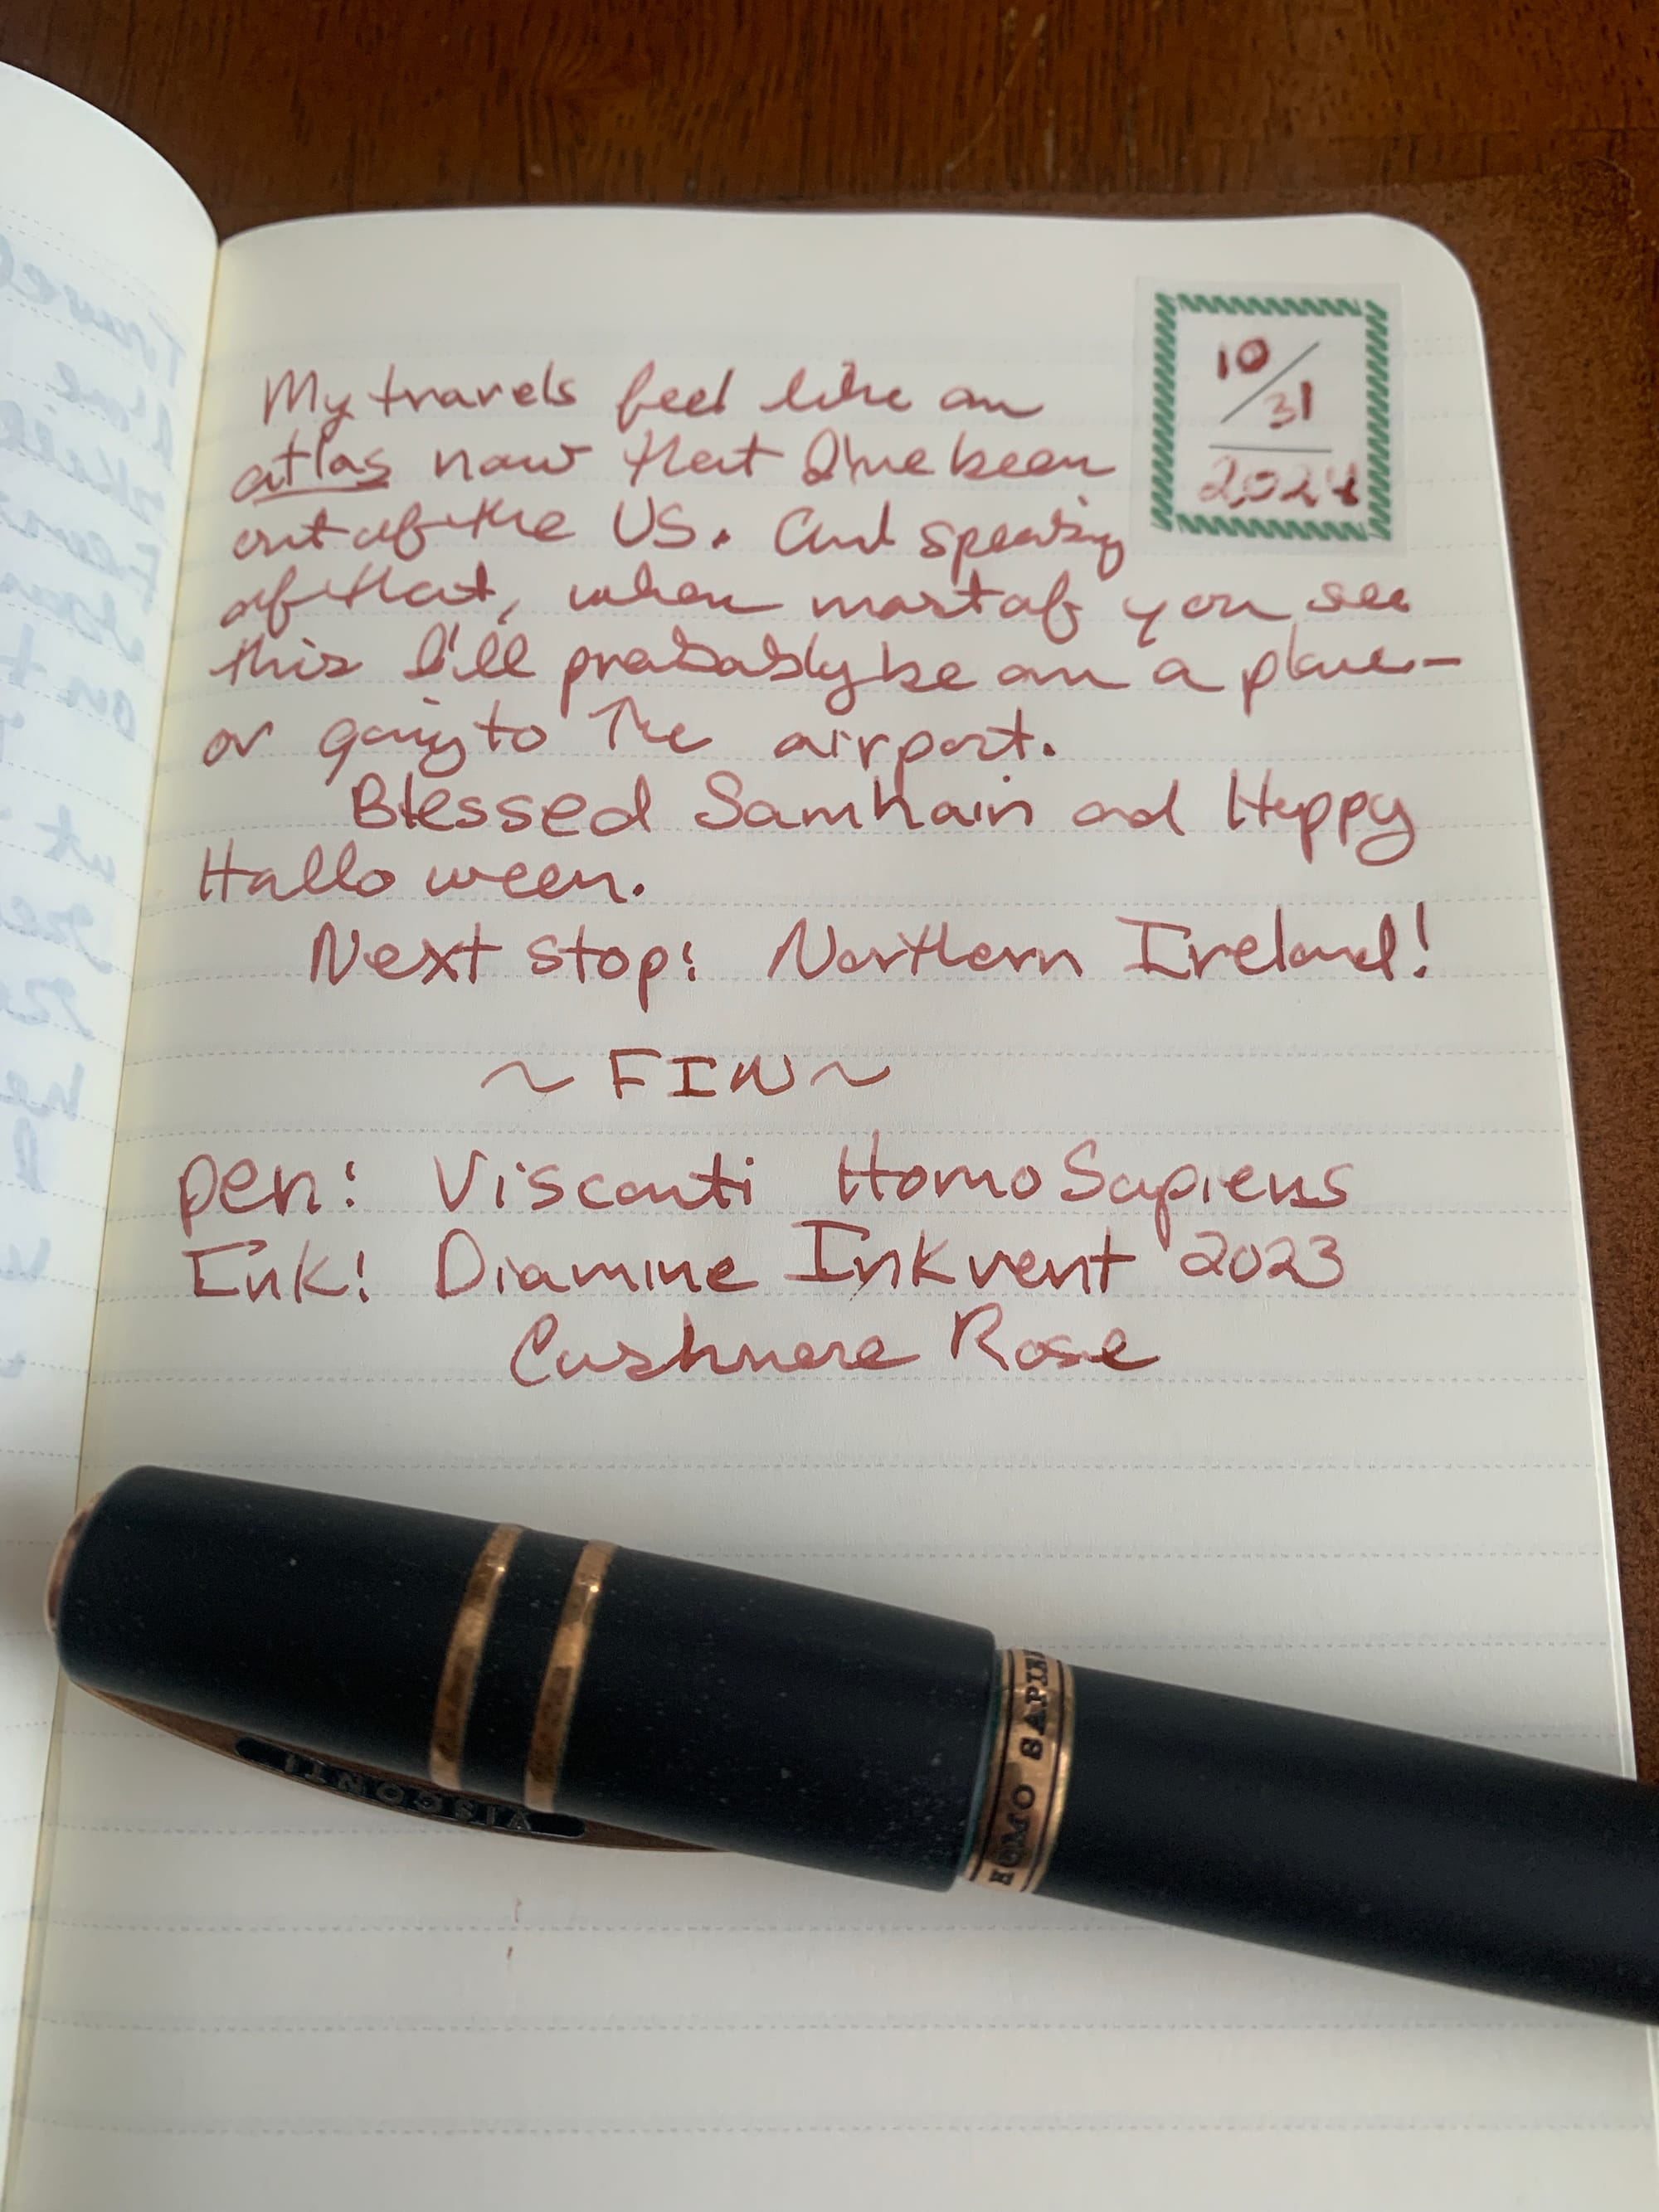 10/31
2024
My travels feel like an
atlas now that I've been
out of the US. And speaking
of that, when most of you see
this I'll probably be on a plane—
or going to the airport.
Blessed Samhain and Happy
Halloween.
Next stop: Northern Ireland!
~ FIN ~
pen: Visconti Homo Sapiens
Ink: Diamine Inkvent 2023
Cashmere Rose
VISCONTI
HOMO SAPIEN